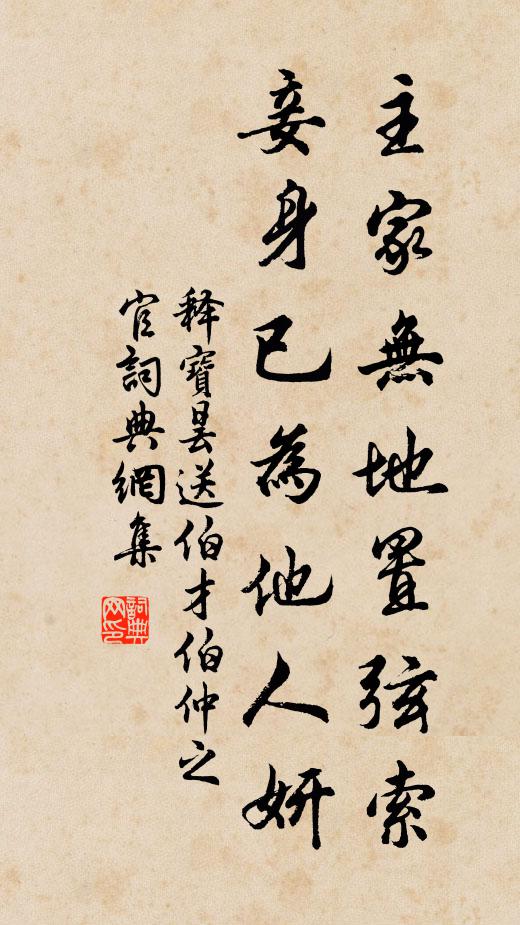 主家無地置弦索
妾身已為他人妍
釋寶曇送伯才伯仲之
官詞典網集
詞典网印